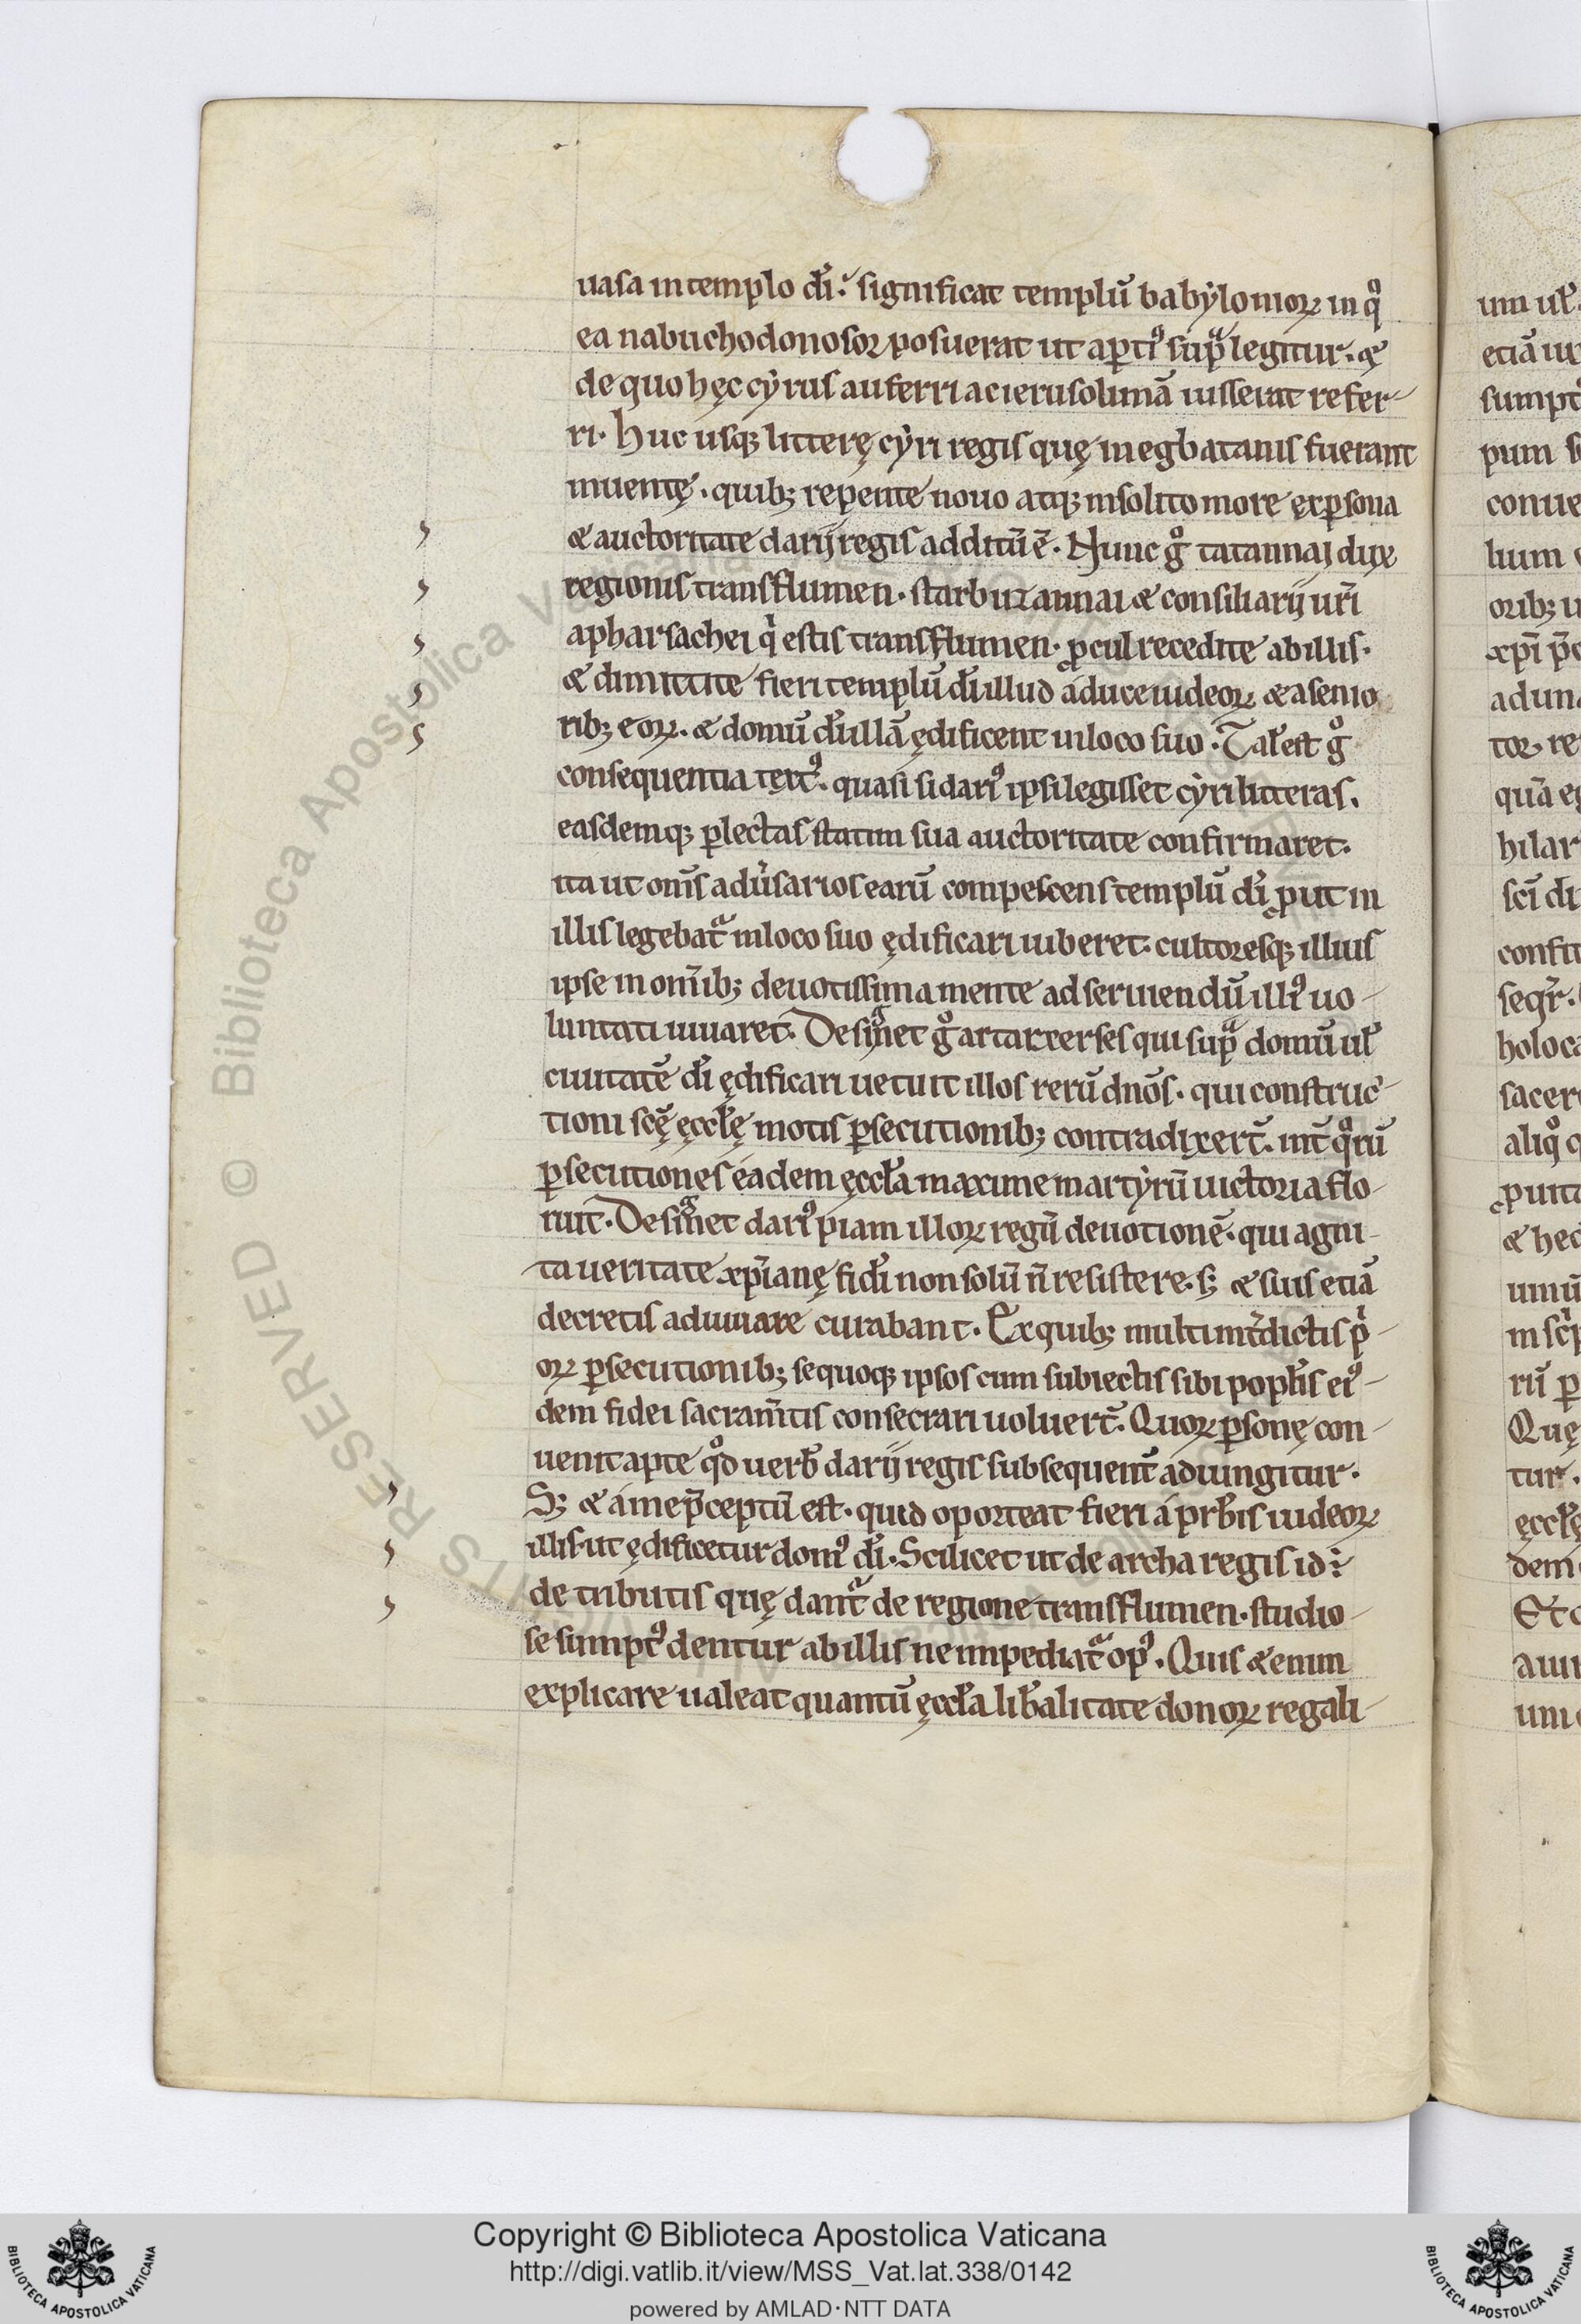 uasa in templo dı̄. significat templū babẏlonioꝝ in qͦ
ea nabuchodonosor posuerat ut aꝑtiꝰ supͣ legitur. &
de quo hęc cẏrus auferri ac ierusolimā iusserat refer-
ri. Huc usqꝫ litterę cẏri regis quę in egbatanis fuerant
inuentę. quibꝫ repente nouo atqꝫ insolito more ex ꝑsona
& auctoritate darij regis additū ē. Nunc gͦ tatannai dux
regionis trans flumen. starbuzannai & consiliarij ur̄i
apharsachei qͥ estis trans flumen. ꝓcul recedite ab illis.
& dimittite fieri templū dı̄ illud a duce iudeoꝝ & a senio
ribꝫ eoꝝ. & domū dı̄ illā ędificent in loco suo. Tal̄ est gͦ
consequentia textꝰ. quasi si dariꝰ ipsi legisset cẏri litteras.
easdemqꝫ ꝑlectas statim sua auctoritate confirmaret.
ita ut om̄s adu̓sarios earū compescens templū dı̄ ꝓut in
illis legebatᷓ in loco suo ędificari iuberet. cultoresqꝫ illius
ipse in om̄ibꝫ deuotissima mente ad seruiendū illiꝰ uo-
luntati iuuaret. Designͣet gͦ artarxerses qui supͣ domū ul̄
ciuitatē dı̄ ędificari uetuit illos rerū dn̄os. qui construc-
tioni scę̄ ęccl̄ę motis ꝑsecutionibꝫ contradixert̄. int̄ qͦrū
ꝑsecutiones eadem ęccl̄a maxime martẏrū uictoria flo-
ruit. Designͣet dariꝰ piam illoꝝ regū deuotionē. qui agni-
ta ueritate xp̄ianę fidı̄ non solū n̄ resistere. sꝫ & suis etiā
decretis adiuuare curabant. Ex quibꝫ multi int̄dictis pͥ-
oꝝ ꝑsecutionibꝫ se quoqꝫ ipsos cum subiectis sibi popl̄is eiꝰ-
dem fidei sacram̄tis consecrari uoluert̄. Quoꝝ ꝑsonę con-
uenit apte qͦd uerb̄ darij regis subsequent̄ adiungitur.
Sꝫ & a me p̄ceptū est. quid oporteat fieri a prb̄is iudeoꝝ
illis. ut ędificetur domꝰ dı̄. Scilicet ut de archa regis id.
de tributis quę dantᷓ de regione trans flumen. studio-
se sumptꝰ dentur ab illis ne impediatᷓ opꝰ. Quis & enim
explicare ualeat quantū ęccl̄a lib̄alitate donoꝝ regali-
Copyright © Biblioteca Apostolica Vaticana
http://digi.vatlib.it/view/MSS_Vat.lat.338/0142
powered by AMLAD·NTT DATA